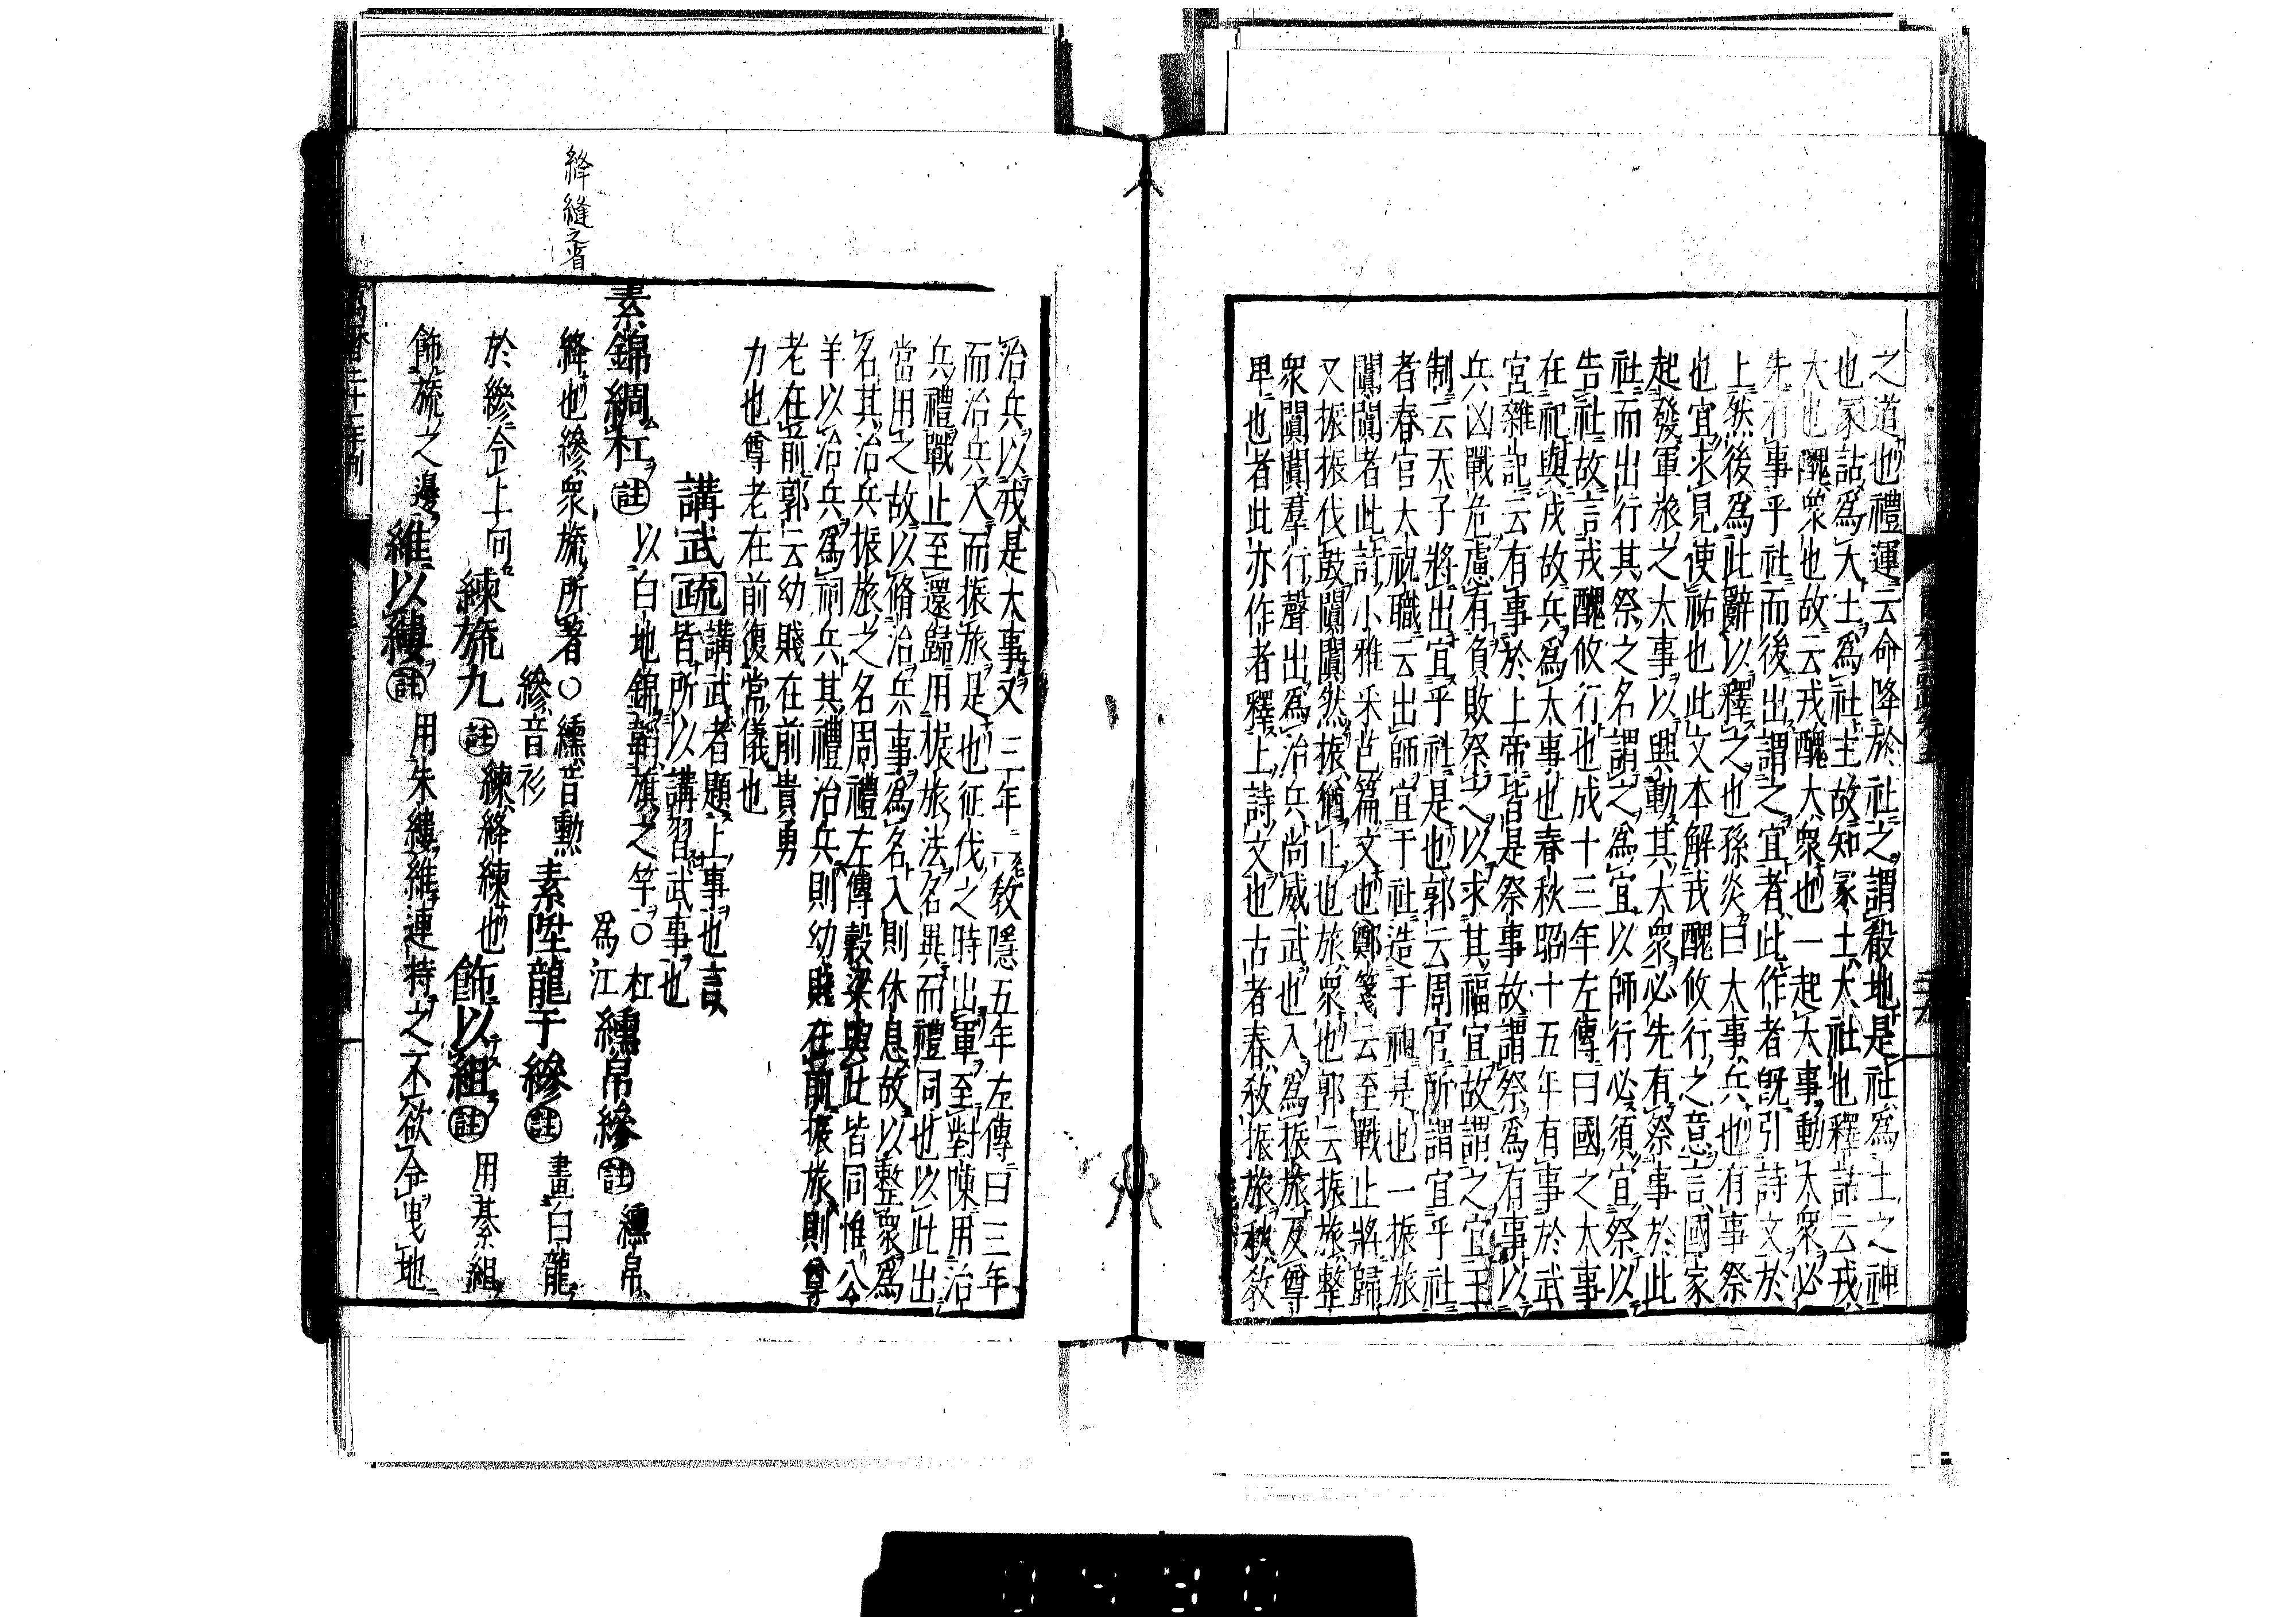 之道也禮運云命降於社之謂殽地是社爲土之神
也冢詁爲大土爲社主故知冢土大社也釋詁云戎
大也醜衆也故云戎醜大衆也一起大事動大衆必
先有事乎社而後出謂之宜者此作者既引詩文於
上然後爲此辭以釋之也孫炎曰大事兵也有事祭
也宜求見使祐也此文本解戎醜攸行之意言國家
起發軍旅之大事以興動其大衆必先有祭事於此
社而出行其祭之名謂之爲宜以師行必須宜祭以
告社故言戎醜攸行也成十三年左傳曰國之大事
在祀與戎故兵爲大事也春秋昭十五年有事於武
宮雜記云有事於上帝皆是祭事故謂祭爲有事以
兵凶戰危慮有負敗祭之以求其福宜故謂之宜王
制云天子將出宜乎社是也郭云周官所謂宜乎社
者春官大祝職云出師宜于社造于祖是也一振旅
闐闐者此詩小雅采芑篇文也鄭箋云至戰止將歸
又振振伐鼓闐闐然振猶止也旅衆也郭云振旅整
衆闐闐羣行聲出爲治兵尚威武也入爲振旅反尊
卑也者此亦作者釋上詩文也古者春敎振旅秋敎
治兵以戒是大事又三年一敎隱五年左傳曰三年
而治兵入而振旅是也征伐之時出軍至對陳用治
兵禮戰止至還歸用振旅法名異而禮同也以此出
當用之故以脩治兵事爲名入則休息故以整衆爲
名其治兵振旅之名周禮左傳穀梁與此皆同惟公
羊以治兵爲祠兵其禮治兵則幼賤在前振旅則尊
老在前郭云幼賤在前貴勇
力也尊老在前復常儀也
講武 疏 講武者題上事也言
皆所以講習武事也
素錦綢杠 註 以白地錦韜旗之竿○杠
爲江 纁帛縿 註 纁帛
絳也縿衆旒所著○纁音勳
縿音衫 素陞龍于縿 註 畫白龍
於縿令上向 練旒九 註 練絳練也 飾以組 註 用綦組
飾旒之邊 維以縷 註 用朱縷維連持之不欲令曳地
絳縫之省